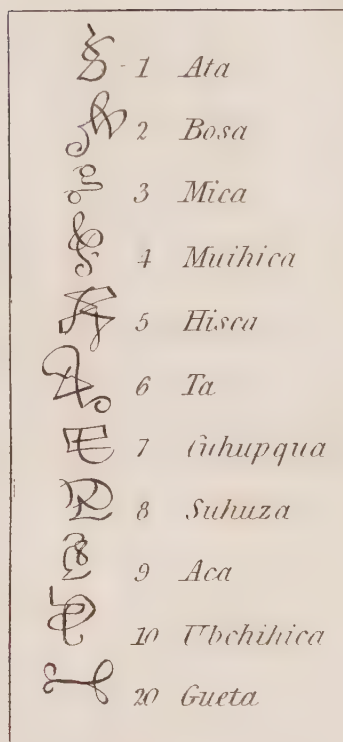 1 Ata
2 Bosa
3 Mica
4 Muihica
5 Hisca
6 Ta
7 Cuhupqua
8 Suhuza
9 Aca
10 Ubchihica
20 Gueta